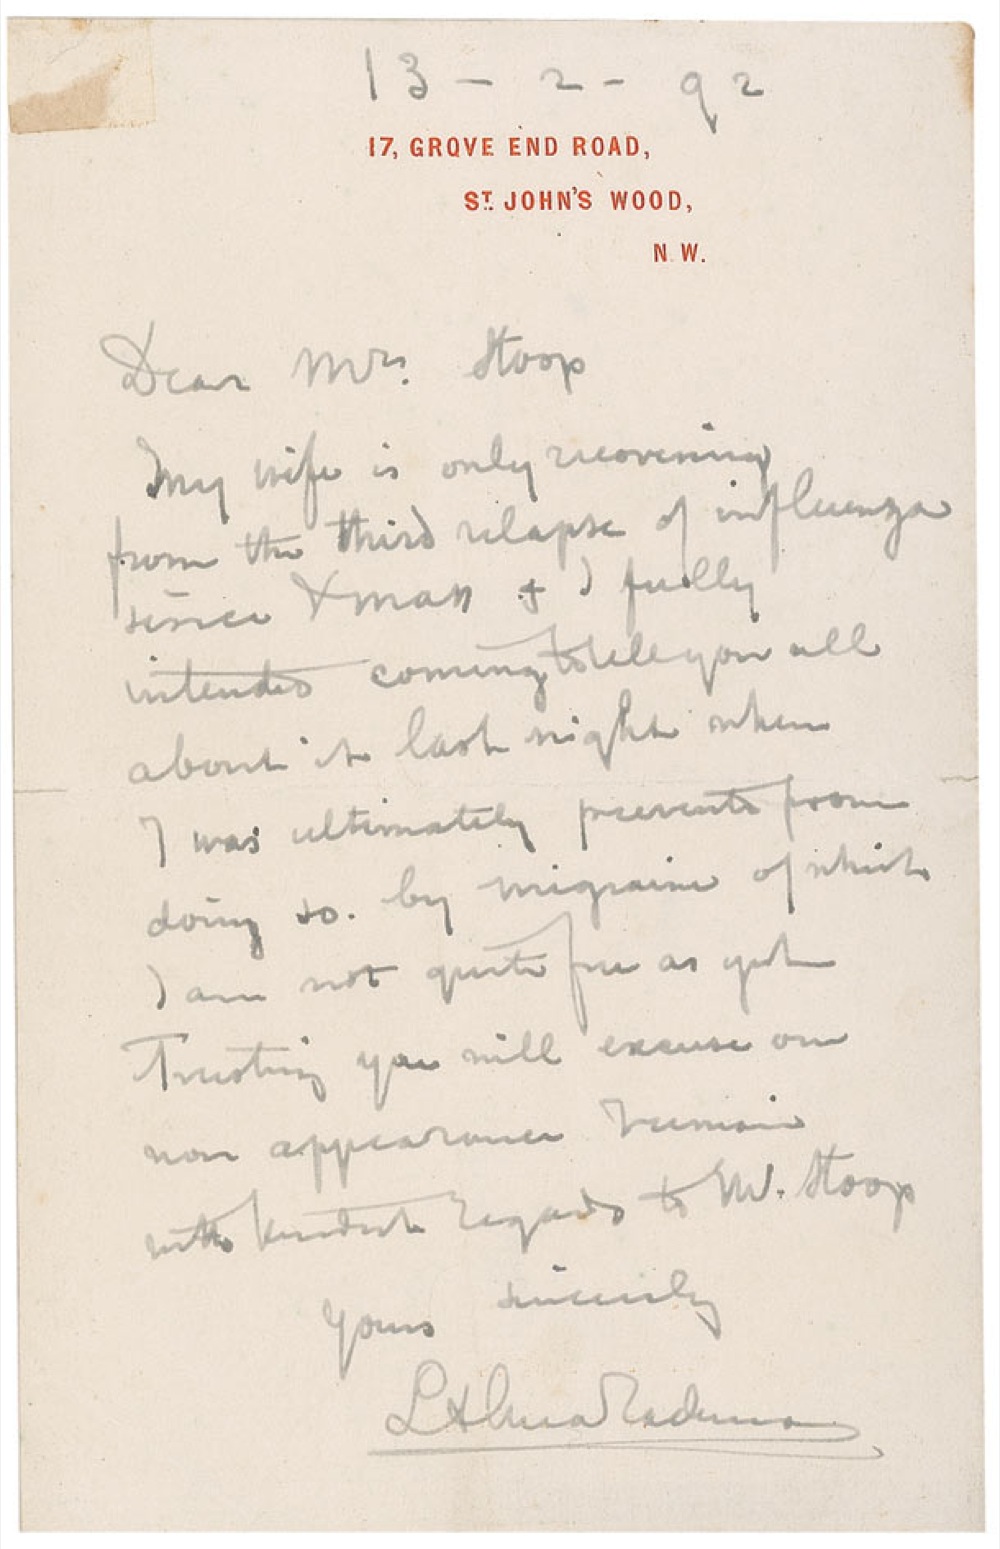 13 - 2 - 92
17, GROVE END ROAD,
ST. JOHN'S WOOD,
N.W.
Dear Mrs. Stoop
My wife is only recovering
from the third relapse of influenza
since Xmass & I fully
intended coming to tell you all
about it last night when
I was ultimately prevented from
doing so. by migraine of which
I am not quite free as yet
Trusting you will excuse our
non appearance I remain
with kindest regards to Mr. Stoop
yours sincerely
L Alma Tadema